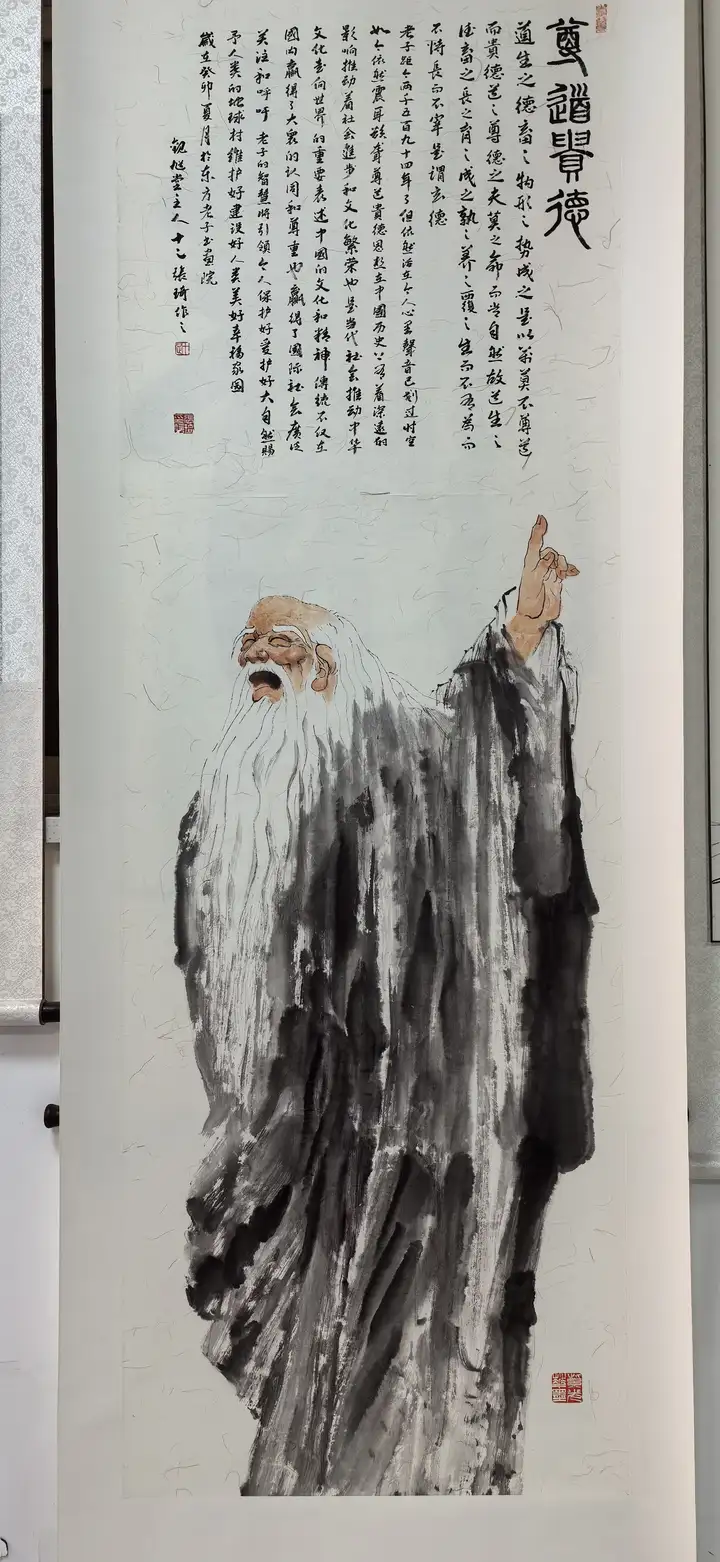 尊道貴德
道生之德畜之物形之势成之是以萬莫不尊道
而貴德道之尊德之夫莫之命而常自然故道生之
德畜之長之育之成之熟之养之覆之生而不有為而
不恃長而不宰是謂玄德
老子距今两千五百九十四年了但依然活在今人心里聲音已划过时空
如今依然震耳欲聋尊道貴德思想在中國历史上有着深遠的
影响推动着社会進步和文化繁荣也是当代社会推动中华
文化走向世界的重要表述中國的文化和精神傳統不仅在
國内贏得了大衆的认同和尊重也贏得了國际社会廣泛
关注和呼吁老子的智慧将引领今人保护好爱护好大自然賜
予人类的地球村維护好建设好人类美好幸福家园
歲在癸卯夏月於东方老子书畫院
觀旭堂主人十之張琦作之